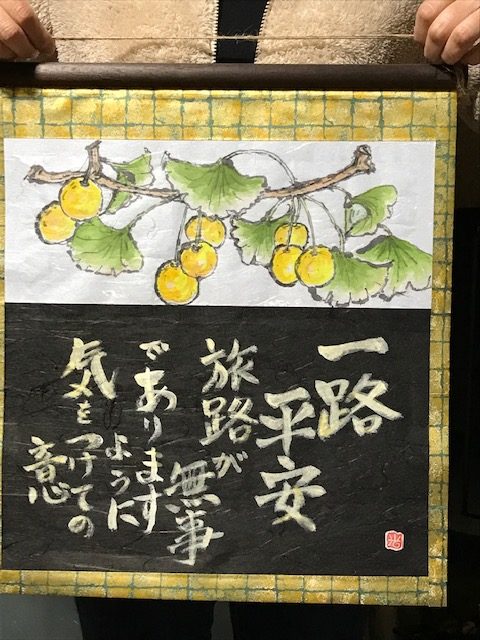 一路
平安
旅路が
無事
であります
ように
気を
つけての
意